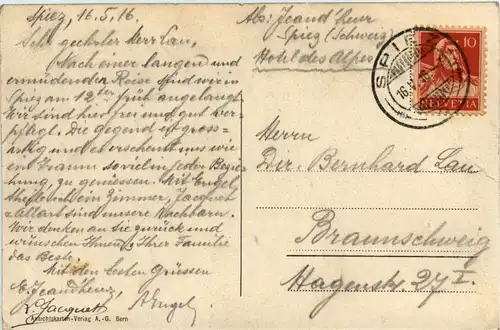 Spiez, 16.5.16.
Sehr geehrter Herr Lau,
Nach einer langen und
ermüdenden Reise sind wir in
Spiez am 12ten früh angelangt.
Wir sind hier frei und gut ver-
pflegt. Die Gegend ist gross-
artig und es erscheint uns wie
ein Traum so viel in jeder Bezie-
hung, zu geniessen. Mit Engel,
theile ich ein Zimmer, Jacquet
Allart sind unsere Nachbarn.
Wir denken an Sie zurück und
wünschen Ihnen & Ihrer Familie
das Beste.
Mit den besten Grüssen
Jeandheur,
L. Jacquet
A. Engel
Ansichtskarten-Verlag A.-G. Bern
Abs: Jeandheur
Spiez (Schweiz)
Hotel des Alpes
SPIEZ
16.V.16
10
HELVETIA
Herrn
Dir. Bernhard Lau
Braunschweig
Hagenstr. 27 I.